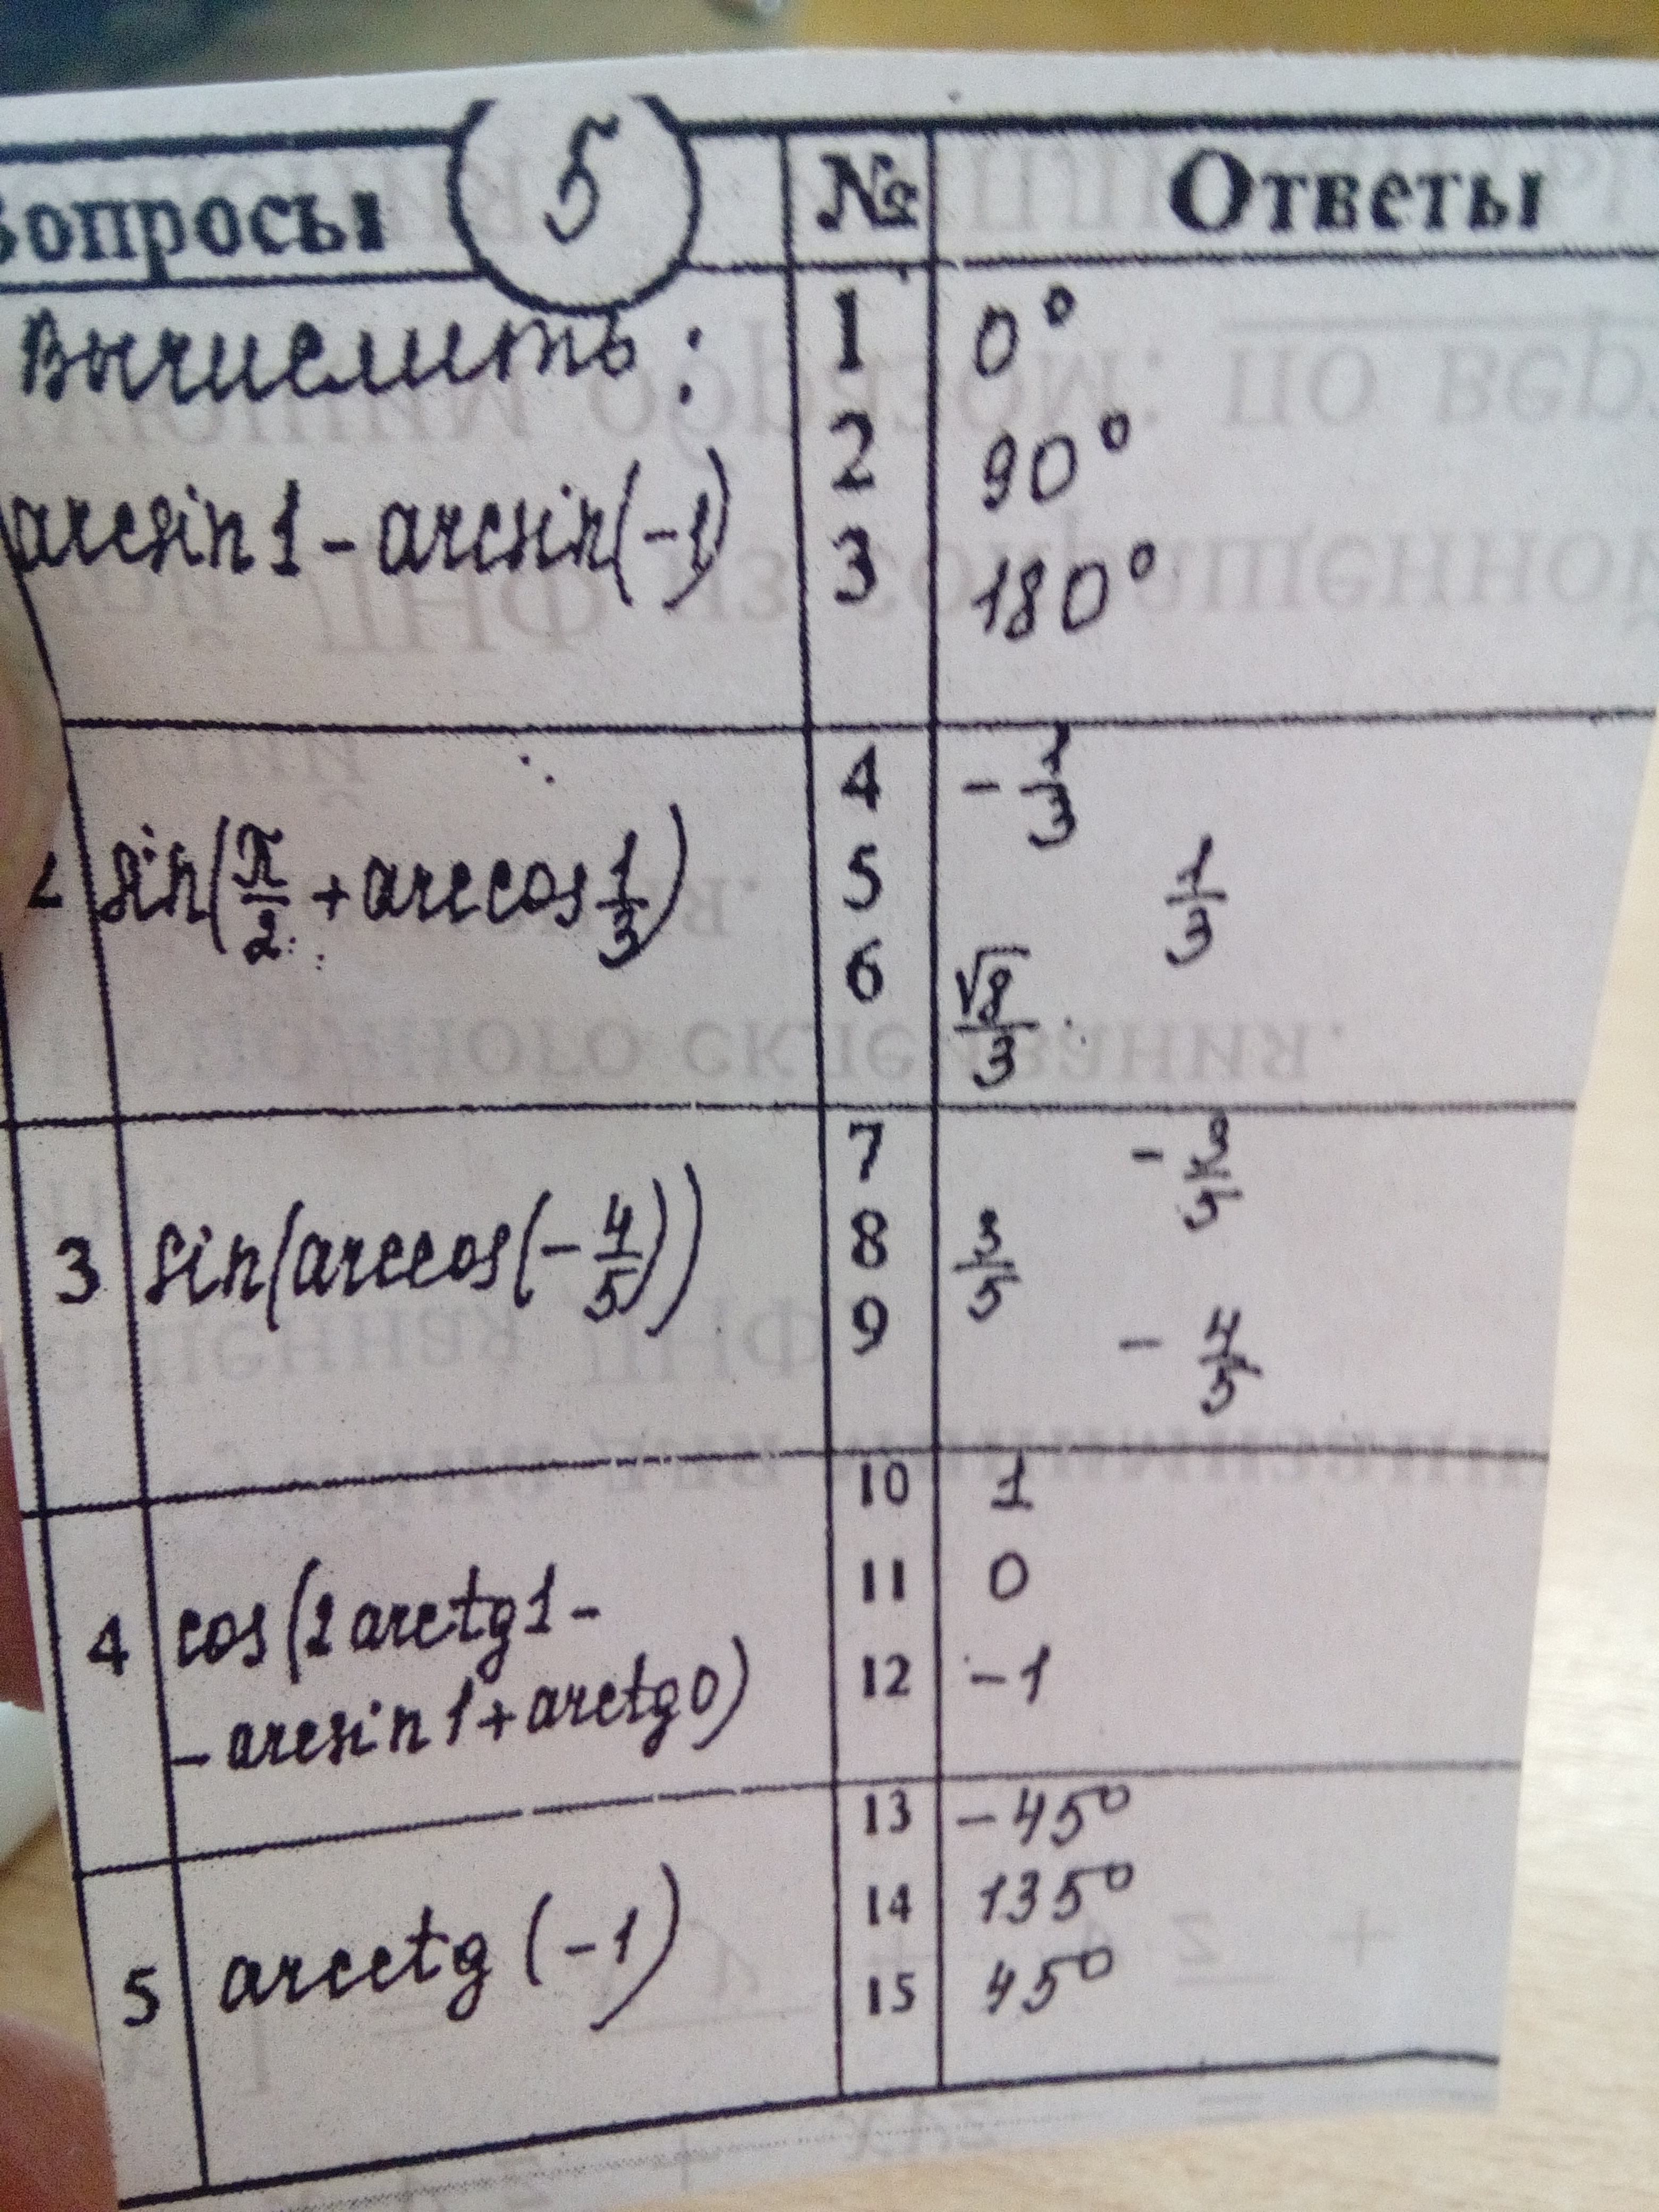 Вопросы 5 № Ответы
Вычислить:
arcsin1-arcsin(-1)
1 0°
2 90°
3 180°
sin(π/2 + arccos 1/3)
4 - 1/3
5 1/3
6 √8/3
3 sin(arccos(-4/5))
7 - 3/5
8 3/5
9 - 4/5
4 cos(2arctg1-
-arcsin1+arctg0)
10 1
11 0
12 -1
5 arcctg(-1)
13 -45°
14 135°
15 45°